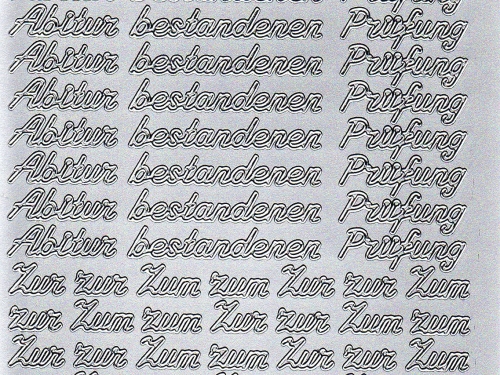 Abitur bestandenen Prüfung
Abitur bestandenen Prüfung
Abitur bestandenen Prüfung
Abitur bestandenen Prüfung
Abitur bestandenen Prüfung
Abitur bestandenen Prüfung
Abitur bestandenen Prüfung
Zur zur Zum zum Zur zur Zum
zur Zum zum Zur zur Zum zum
Zur zur Zum zum Zur zur Zum